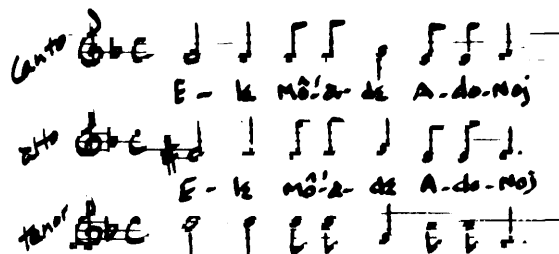 Canto
E - le Mô'a- dé A - do - Noj
alto
E - le Mô'a- dé A - do - Noj
tenor